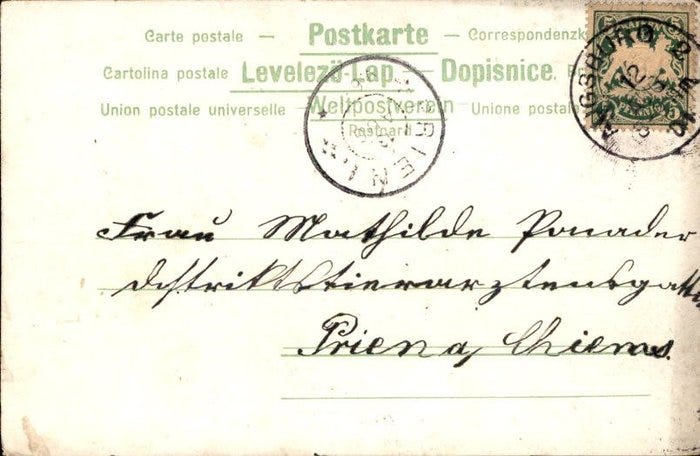 Carte postale — Postkarte — Correspondenzk
Cartolina postale Levelező-Lap. Dopisnice.
Union postale universelle Weltpostverein Unione postale
Postcard
PRIEN
AUGSBURG
12
Frau Mathilde Ponader
Distriktstierarztensgatt
Prien a, Chiems.